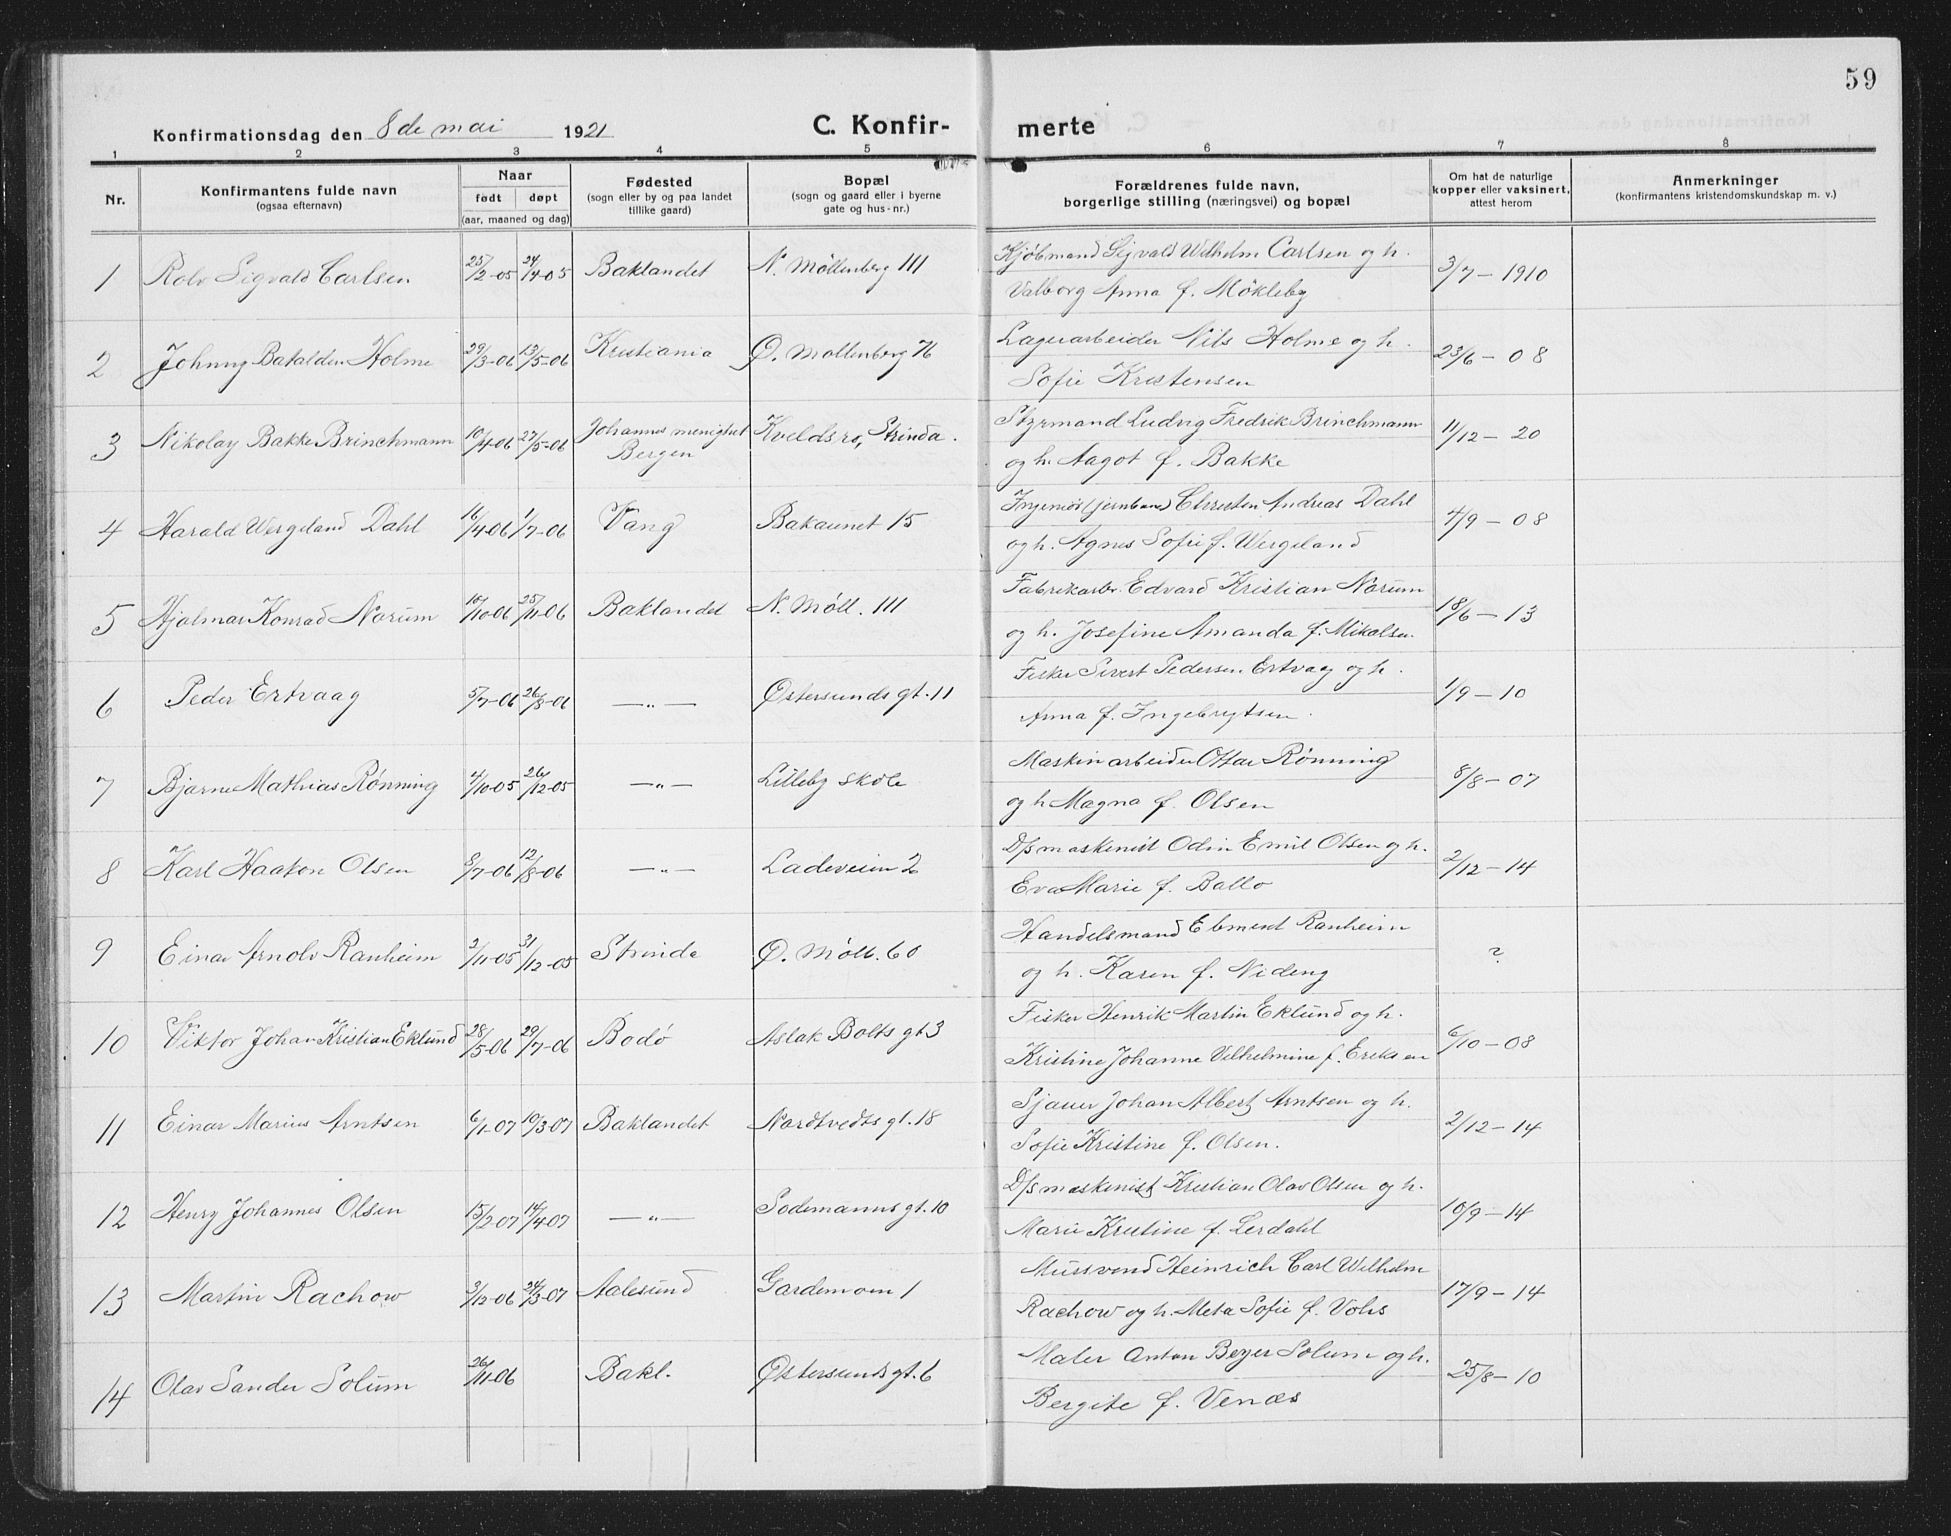 59
Konfirmationsdag den 8de mai 1921
C. Konfir-merte
1 2 3 4 5 6 7 8
Nr.
Konfirmantens fulde navn
(ogsaa efternavn)
Naar
født døpt
(aar, maaned og dag)
Fødested
(sogn eller by og paa landet
tillike gaard)
Bopæl
(sogn og gaard eller i byerne
gate og hus-nr.)
Forældrenes fulde navn,
borgerlige stilling (næringsvei) og bopæl
Om hat de naturlige
kopper eller vaksinert,
attest herom
Anmerkninger
(konfirmantens kristendomskundskap m. v.)
1 Rolv Sigvald Carlsen 25/2-05 24/4-05 Baklandet N. Møllenberg 111
Kjøbmand Sigvald Wilhelm Carlsen og h. 3/7 - 1910
Valborg Anna f. Møkleby
2 Johnny Batalden Holme 29/3-06 13/5-06 Kristiania Ø. Møllenberg 76
Lagerarbeider Nils Holme og h. 23/6 - 08
Sofie Kristensen
3 Nikolay Bakke Brinchmann 10/4-06 27/5-06 Johannes menighet Kveldsro, Strinda.
Bergen
Styrmand Ludvig Fredrik Brinchmann 11/12 - 20
og h. Aagot f. Bakke
4 Harald Wergeland Dahl 16/4-06 1/7-06 Vang Bakaunet 15
Ingeniør (jernbane) Christen Andreas Dahl 4/9 - 08
og h. Agnes Sofie f. Wergeland
5 Hjalmar Konrad Norum 10/10-06 25/11-06 Baklandet N. Møll. 111
Fabrikarbr. Edvard Kristian Norum 18/6 - 13
og h. Josefine Amanda f. Mikalsen
6 Peder Ertvaag 5/7-06 26/8-06 —„— Østersunds gt. 11
Fisker Sivert Pedersen Ertvaag og h. 1/9 - 10
Anna f. Ingebrigtsen.
7 Bjarne Mathias Rønning 4/10-05 26/12-05 —„— Lilleby skole
Maskinarbeider Ottar Rønning 8/8 - 07
og h Magna f. Olsen
8 Karl Haakon Olsen 8/7-06 12/8-06 —„— Ladeveien 2
D/s maskinist Odin Emil Olsen og h. 2/12 - 14
Eva Marie f. Ballo
9 Einar Arnolv Ranheim 3/11-05 31/12-05 Strinda Ø. Møll. 60
Handelsmand Ebmert Ranheim ?
og h. Karen f. Nideng
10 Viktor Johan Kristian Eklund 28/5-06 29/7-06 Bodø Aslak Bolts gt 3
Fisker Henrik Martin Eklund og h. 6/10 - 08
Kristine Johanne Vilhelmine f. Eriksen
11 Einar Marius Arntsen 6/1-07 10/3-07 Baklandet Nordtvedts gt. 18
Sjauer Johan Albert Arntsen og h. 2/12 - 14
Sofie Kristine f. Olsen.
12 Henry Johannes Olsen 15/2-07 14/4-07 —„— Sodemanns gt. 10
D/s maskinist Kristian Olav Olsen og h. 10/9 - 14
Marie Kristine f. Lerdahl
13 Martin Rachow 3/12-06 24/3-07 Aalesund Gardemoen 1
Mursvend Heinrich Carl Wilhelm 17/9 - 14
Rachow og h. Meta Sofie f. Vohs
14 Olav Sander Solum 26/11-06 Bakl. Østersunds gt. 6
Maler Anton Beyer Solum og h. 25/8 - 10
Bergite f. Venæs